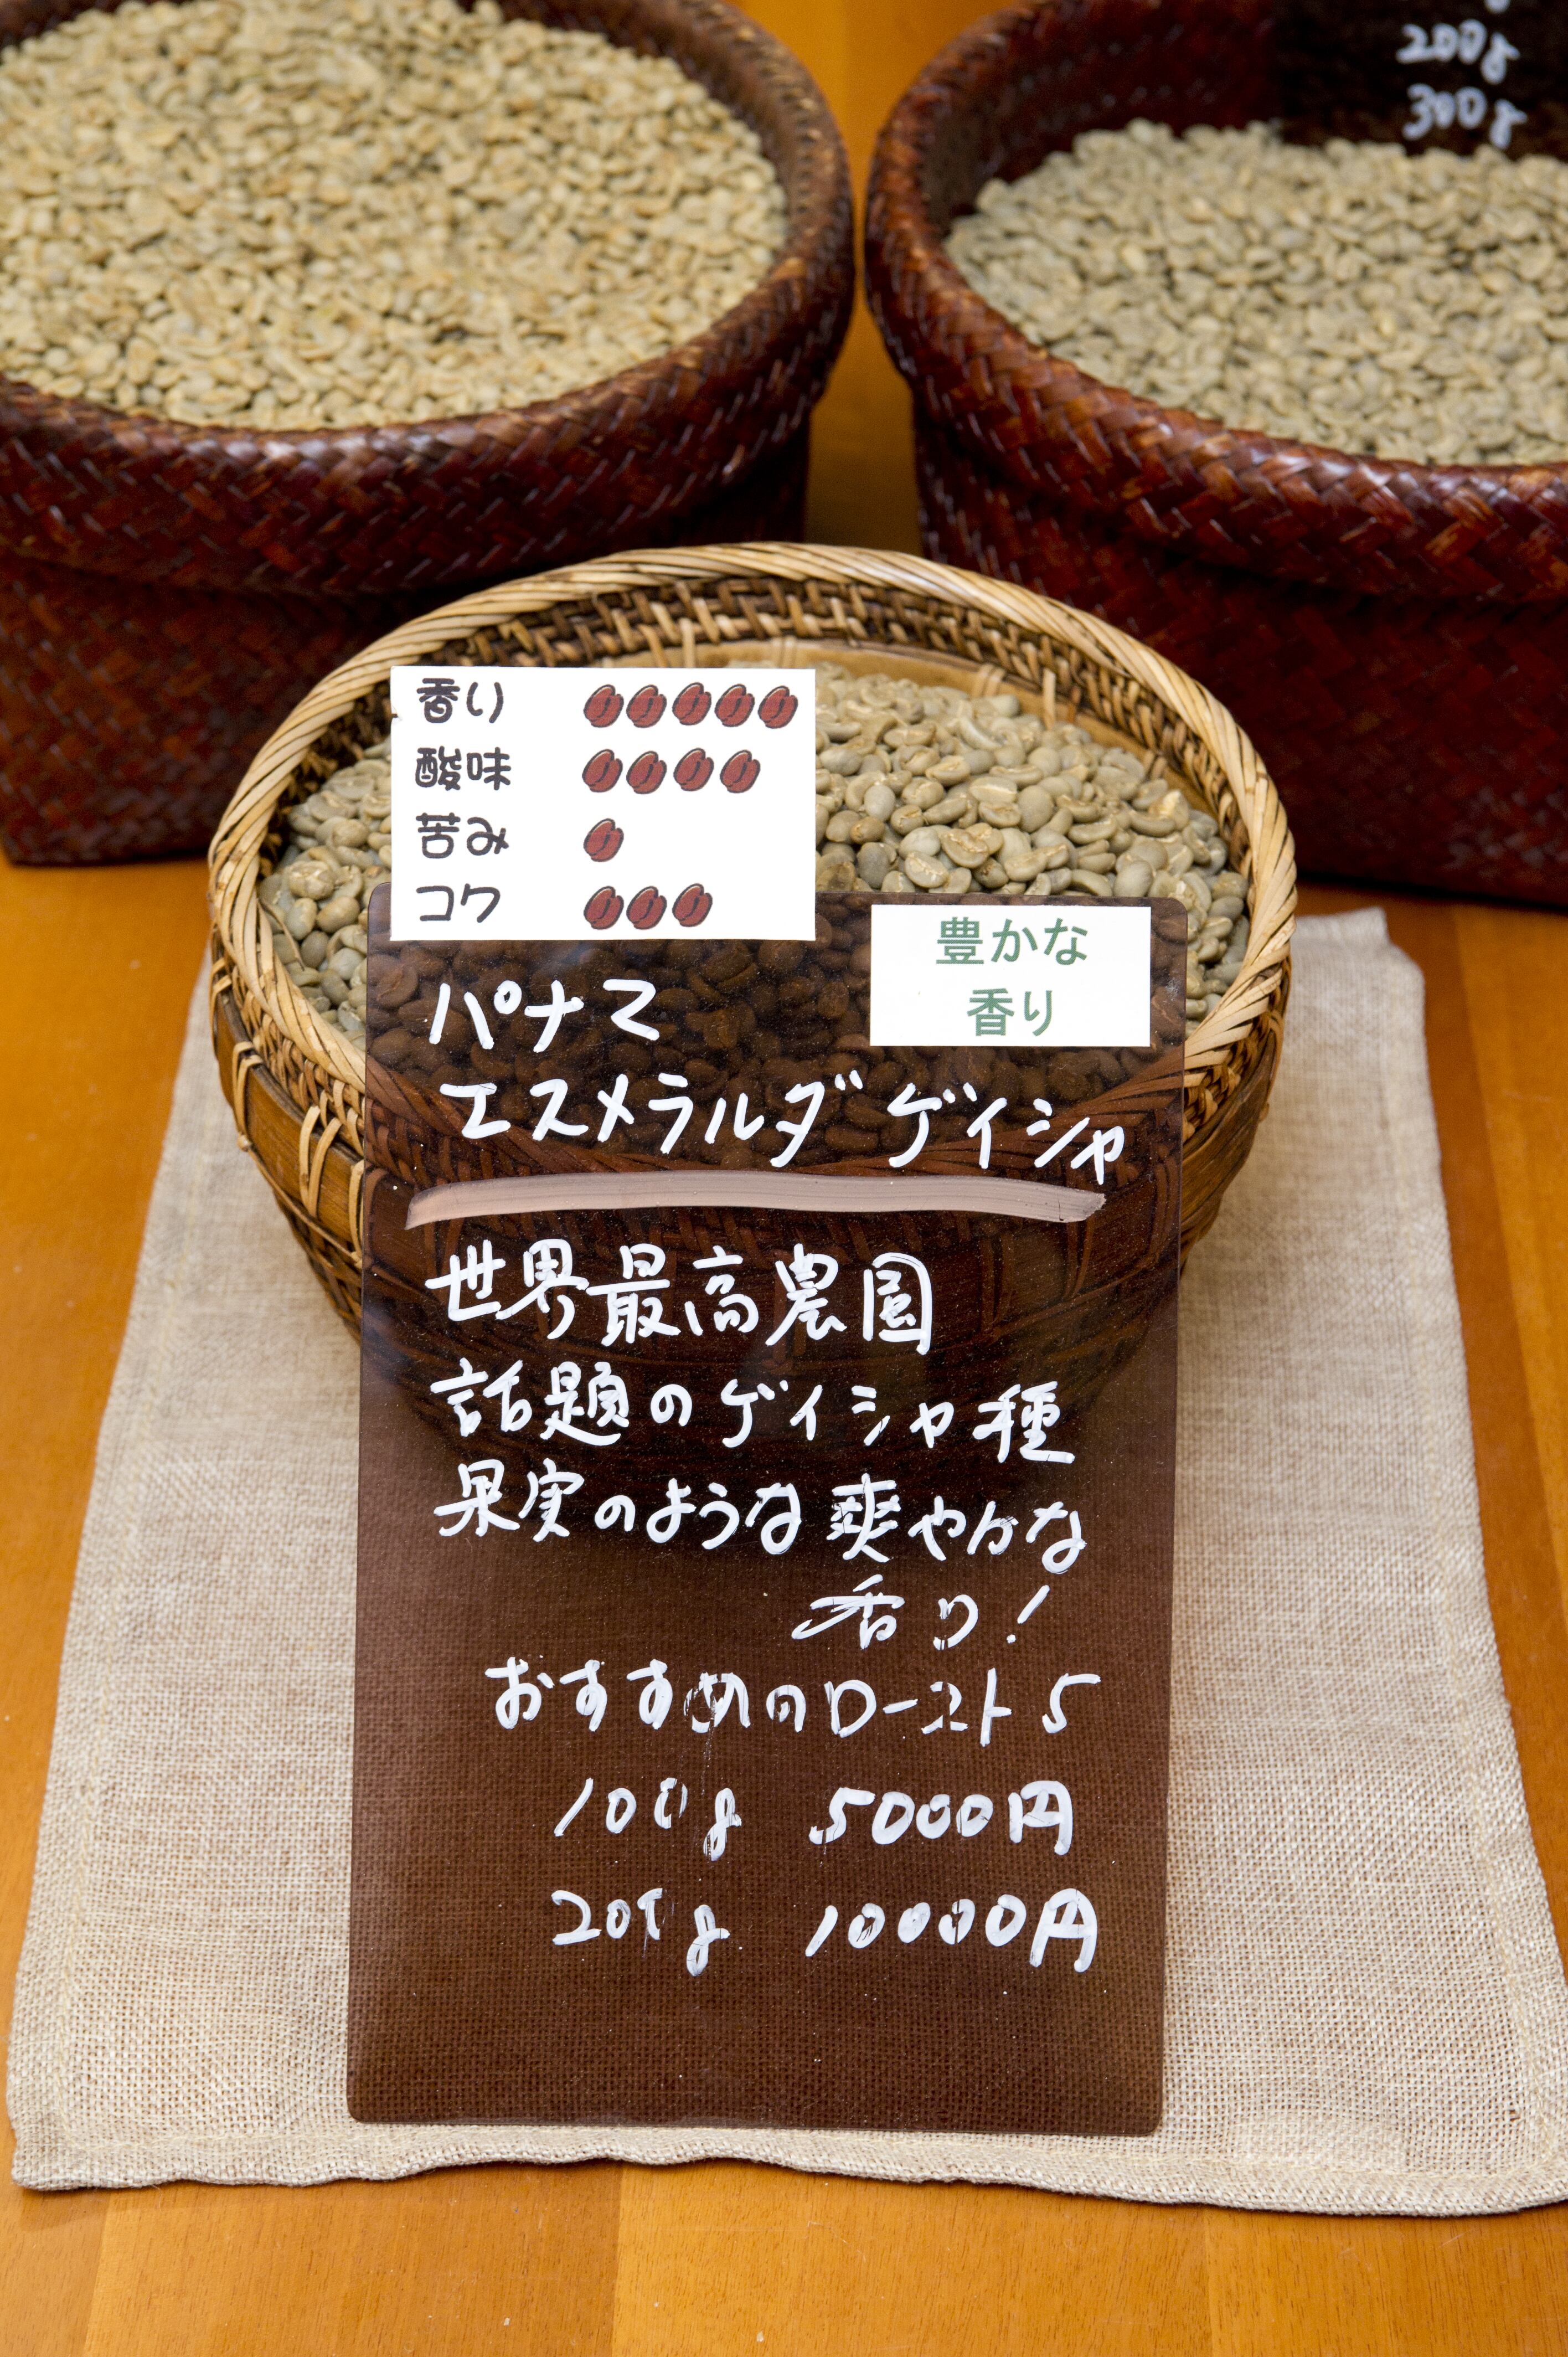 200g
300g
香り
酸味
苦み
コク
豊かな
香り
パナマ
エスメラルダ ゲイシャ
世界最高農園
話題のゲイシャ種
果実のような爽やかな
香り!
おすすめのロースト5
100g 5000円
200g 10000円